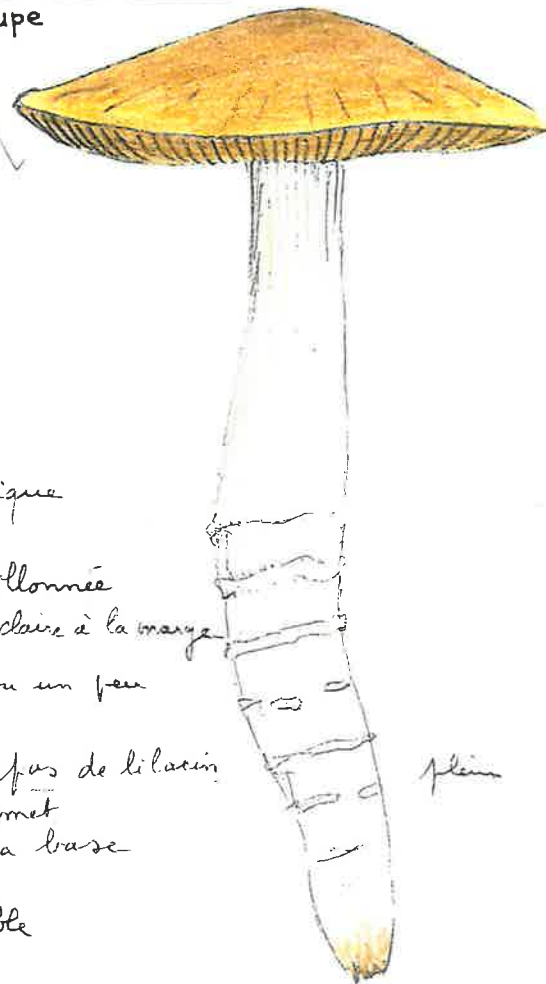 upe
ique
llonnée
claire à la marge
ou un peu
pas de lilacin
met
a base
ble
plein